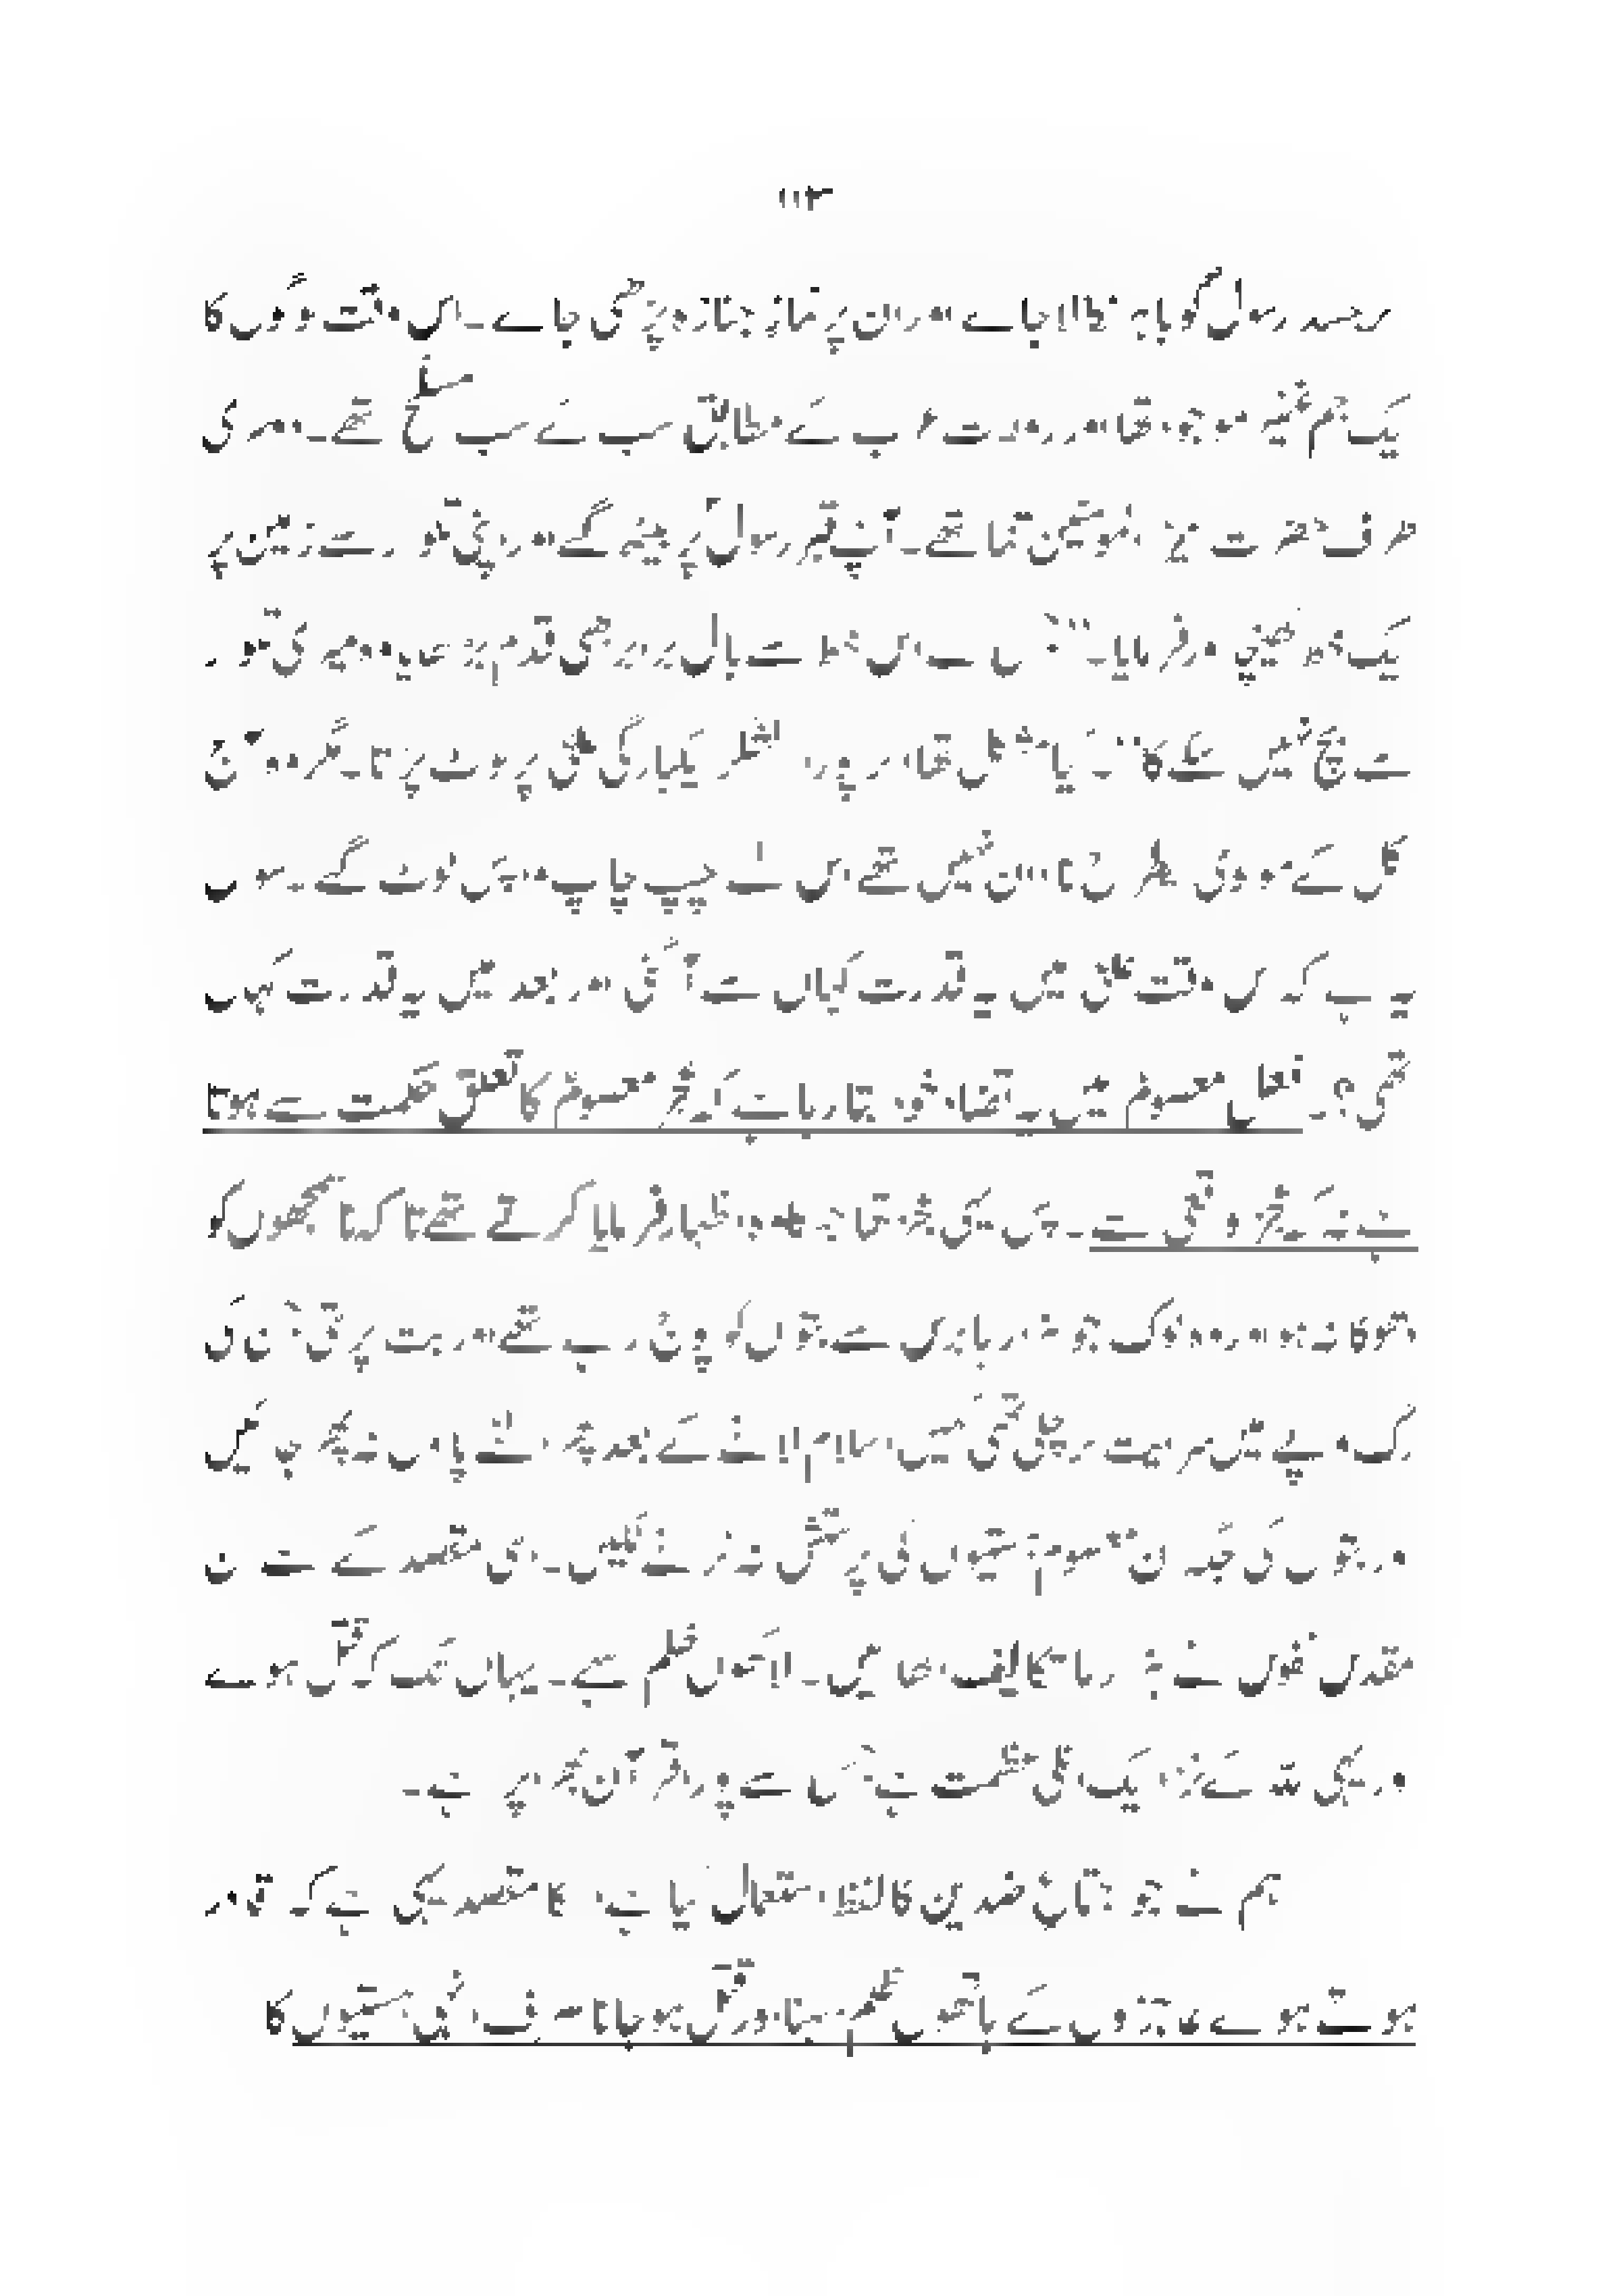 ۱۱۳
کر جسد رسولؐ کو باہر نکالا جائے اور ان پر نماز جنازہ پڑھی جائے۔ اس وقت لوگوں کا
ایک جم غفیر موجود تھا اور روایت عرب کے مطابق سب کے سب مسلح تھے۔ دوسری
طرف حضرت امیر المومنینؑ تنہا تھے۔ آپؑ قبر رسولؐ پر بیٹھ گئے اور اپنی تلوار سے زمین پر
ایک خط کھینچا اور فرمایا۔ "جس نے اس خط سے بال برابر بھی قدم بڑھایا وہ میری تلوار
سے بچ نہیں سکے گا"۔ کیا مشکل تھا اگر پورا لشکر یکبارگی علیؑ پر ٹوٹ پڑتا۔ مگر وہ آج
کل کے مولوی کی طرح نادان نہیں تھے اس لئے چپ چاپ واپس لوٹ گئے۔ سوال
یہ ہے کہ اس وقت علیؑ میں یہ قدرت کہاں سے آ گئی اور بعد میں یہ قدرت کہاں
گئی؟۔ افعال معصومؑ میں یہ تضاد خود بتا رہا ہے کہ عجز معصومؑ کا تعلق حکمت سے ہوتا
ہے نہ کہ عجز واقعی سے۔ پس یہی عجز تھا جس کا وہ اظہار فرمایا کرتے تھے تا کہ ناسمجھوں کو
دھوکا نہ ہو اور وہ لوگ جو ہزارہا برس سے بتوں کو پوج رہے تھے اور بت پرستی جن کی
رگ و پے میں سرایت کر چکی تھی کہیں اسلام لانے کے بعد پھر الٹے پاؤں نہ پھر جائیں
اور بتوں کی جگہ ان معصومؑ ہستیوں کی پرستش نہ کرنے لگیں۔ اسی مقصد کے لئے ان
مقدس نفوس نے ہزارہا تکالیف اٹھائیں۔ لاکھوں ظلم سہے۔ یہاں تک کہ قتل ہوئے
اور یہی اللہ کے نزدیک اعلیٰ عظمت ہے جس سے پورا قرآن بھرا پڑا ہے۔
ہم نے جو اجتماع ضدین کا لفظ استعمال کیا ہے اس کا مقصد یہی ہے کہ قادر
ہوتے ہوئے عاجزوں کے ہاتھوں ظلم سہنا اور قتل ہو جانا صرف انہیں ہستیوں کا